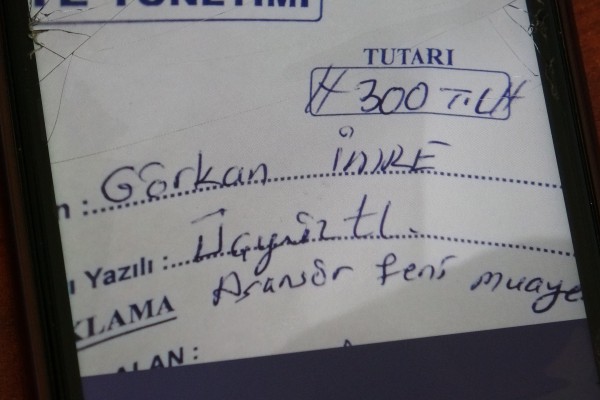 TE YÖNETİMİ
TUTARI
# 300 TL #
n : Görkan İMRE
ı Yazılı : Üçyüz tl.
KLAMA Asansör feni muaye
ALAN :